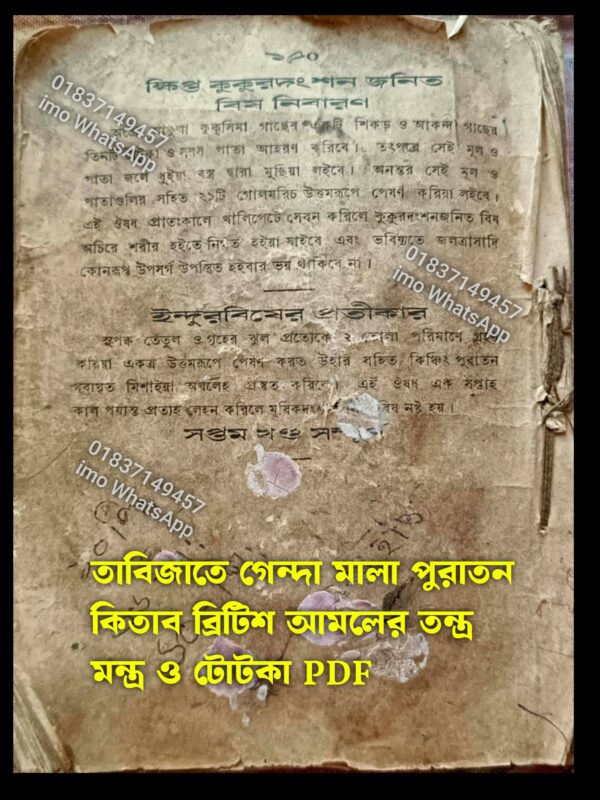 ১৮০
ক্ষিপ্ত কুকুরদংশন জনিত
বিষ নিবারণ
কুকুসিমা গাছের একটি শিকড় ও আকন্দ গাছের
তিনটি ও পাতা আহরণ করিবে। তৎপরে সেই মূল ও
পাতা জলে ধুইয়া বস্ত্র দ্বারা মুছিয়া লইবে। অনন্তর সেই মূল ও
পাতাগুলির সহিত ২১টি গোলমরিচ উত্তমরূপে পেষণ করিয়া লইবে।
এই ঔষধ প্রাতঃকালে খালিপেটে সেবন করিলে কুকুরদংশনজনিত বিষ
অচিরে শরীর হইতে নির্গত হইয়া যাইবে এবং ভবিষ্যতে জলত্রাসাদি
কোনরূপ উপসর্গ উপস্থিত হইবার ভয় থাকিবে না।
ইন্দুরবিষের প্রতীকার
সুপক্ক তেতুল ও গৃহের ঝুল প্রত্যেকে ২ তোলা পরিমাণে গ্রহণ
করিয়া একত্র উত্তমরূপে পেষণ করত উহার সহিত কিঞ্চিৎ পুরাতন
গব্যঘৃত মিশাইয়া অবলেহ প্রস্তুত করিবে। এই ঔষধ এক সপ্তাহ
কাল পর্যন্ত প্রত্যহ লেহন করিলে মূষিকদংশন বিষ নষ্ট হয়।
সপ্তম খণ্ড সমাপ্ত
01837149457
imo WhatsApp
01837149457
imo WhatsApp
01837149457
imo WhatsApp
তাবিজাতে গেন্দা মালা পুরাতন
কিতাব ব্রিটিশ আমলের তন্ত্র
মন্ত্র ও টোটকা PDF